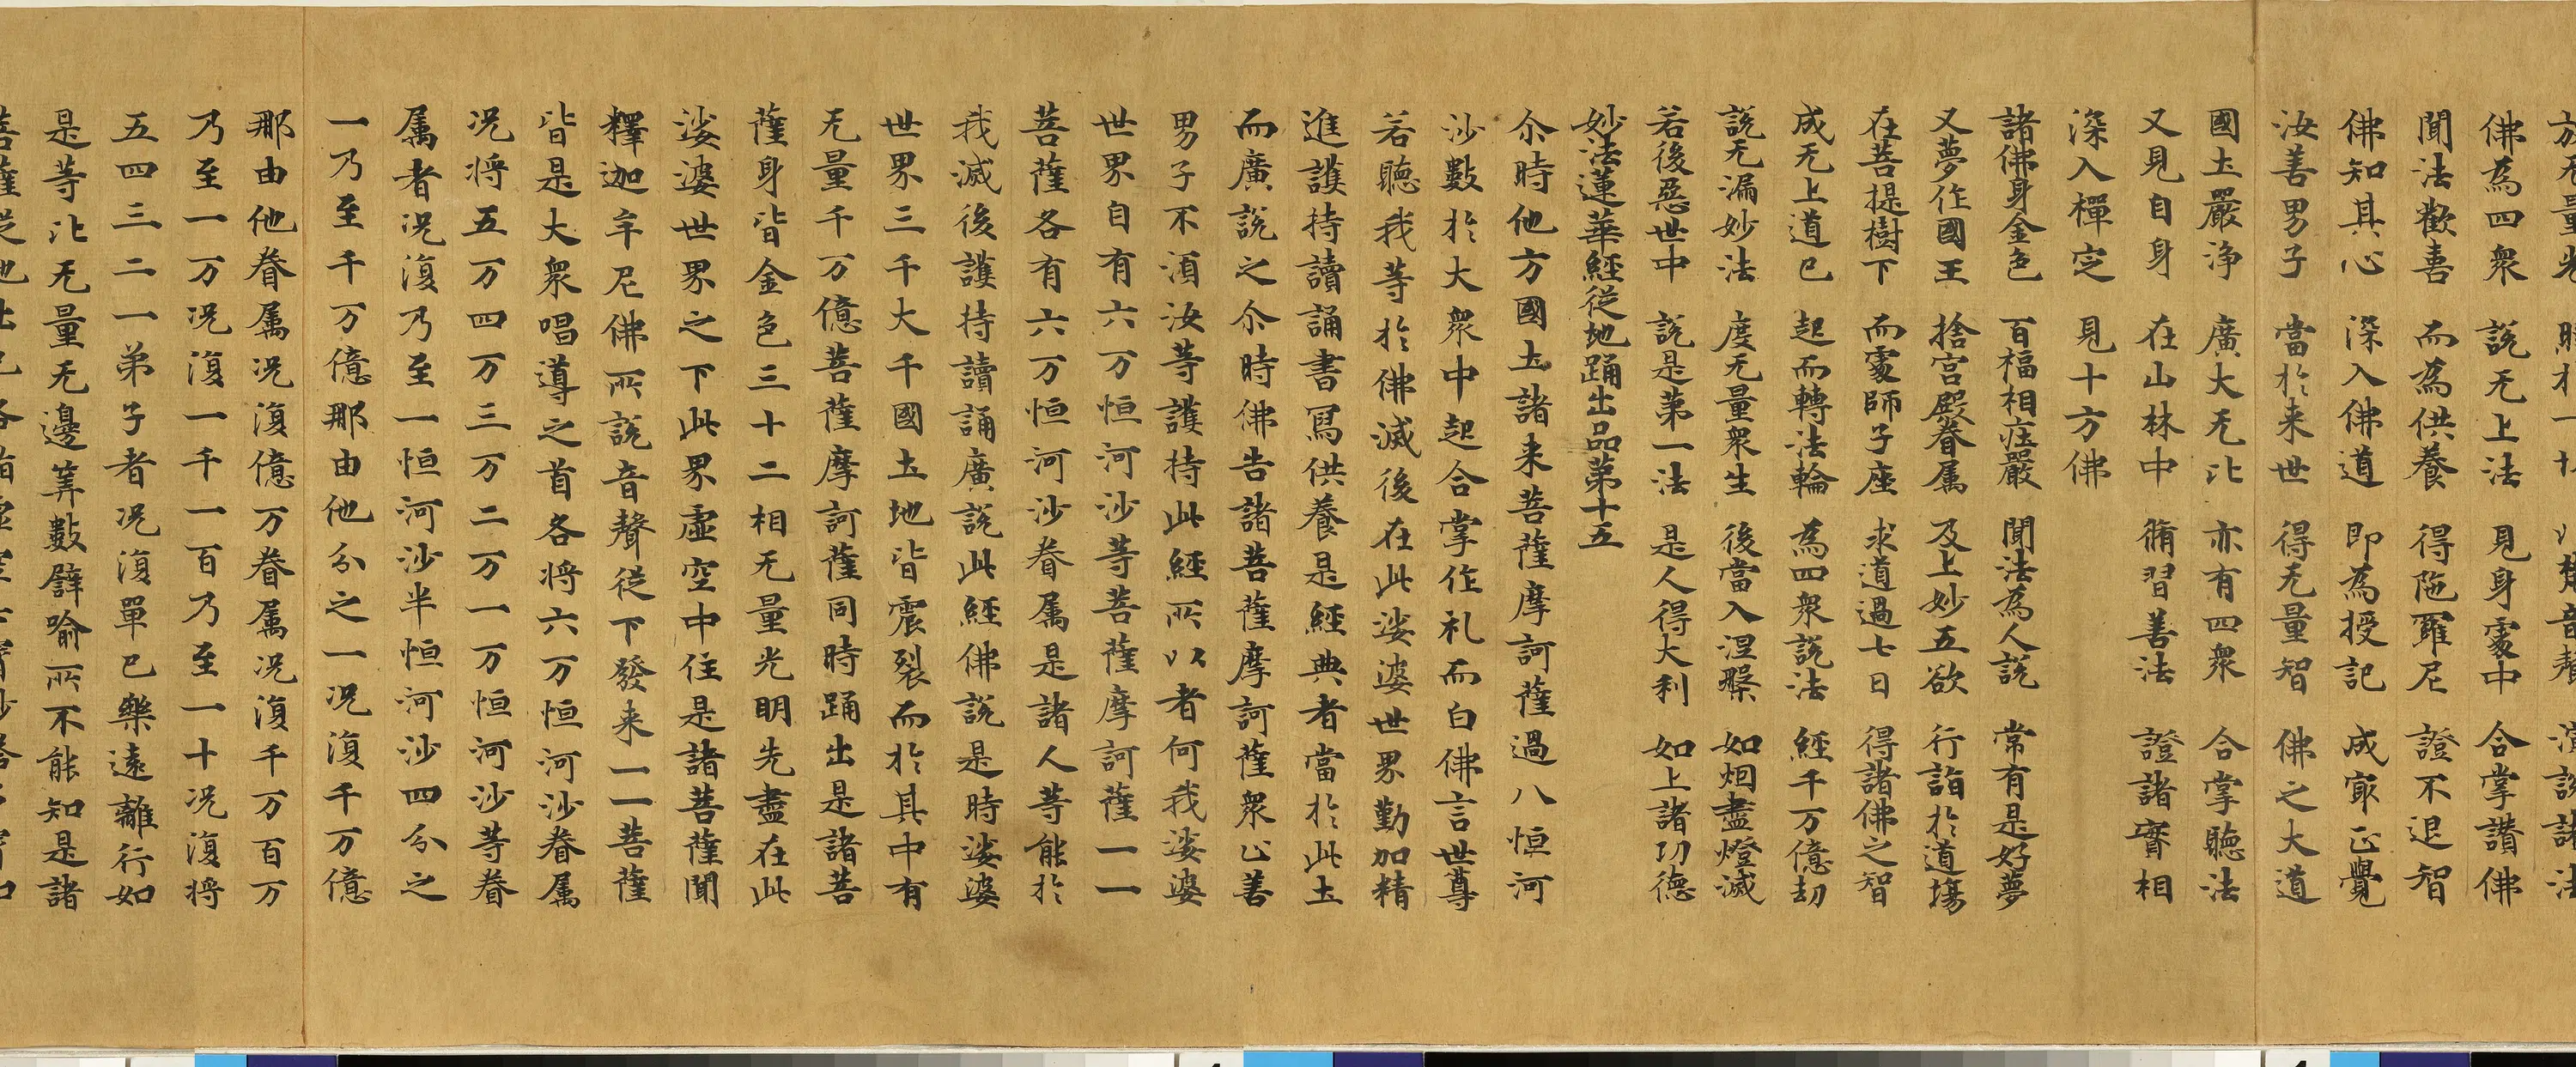 佛為四衆　說无上法　見身處中　合掌讃佛
聞法歡喜　而為供養　得陁羅尼　證不退智
佛知其心　深入佛道　即為授記　成冣正覺
汝善男子　當於来世　得无量智　佛之大道
國圡嚴淨　廣大无比　亦有四衆　合掌聽法
又見自身　在山林中　脩習善法　證諸實相
深入禪定　見十方佛
諸佛身金色　百福相莊嚴　聞法為人說　常有是好夢
又夢作國王　捨宮殿眷属　及上妙五欲　行詣於道場
在菩提樹下　而處師子座　求道過七日　得諸佛之智
成无上道已　起而轉法輪　為四衆說法　經千万億劫
說无漏妙法　度无量衆生　後當入涅槃　如烟盡燈滅
若後惡世中　說是第一法　是人得大利　如上諸功德
妙法蓮華經從地踊出品第十五
尒時他方國圡諸来菩薩摩訶薩過八恒河
沙數於大衆中起合掌作礼而白佛言世尊
若聽我等於佛滅後在此娑婆世界勤加精
進護持讀誦書寫供養是經典者當於此圡
而廣說之尒時佛告諸菩薩摩訶薩衆止善
男子不湏汝等護持此經所以者何我娑婆
世界自有六万恒河沙等菩薩摩訶薩一一
菩薩各有六万恒河沙眷属是諸人等能於
我滅後護持讀誦廣說此經佛說是時娑婆
世界三千大千國圡地皆震裂而於其中有
无量千万億菩薩摩訶薩同時踊出是諸菩
薩身皆金色三十二相无量光明先盡在此
娑婆世界之下此界虛空中住是諸菩薩聞
釋迦牟尼佛所說音聲從下發来一一菩薩
皆是大衆唱導之首各将六万恒河沙眷属
况将五万四万三万二万一万恒河沙等眷
属者况復乃至一恒河沙半恒河沙四分之
一乃至千万億那由他分之一况復千万億
那由他眷属况復億万眷属况復千万百万
乃至一万况復一千一百乃至一十况復将
五四三二一弟子者况復單己樂遠離行如
是等比无量无邊筭數譬喻所不能知是諸